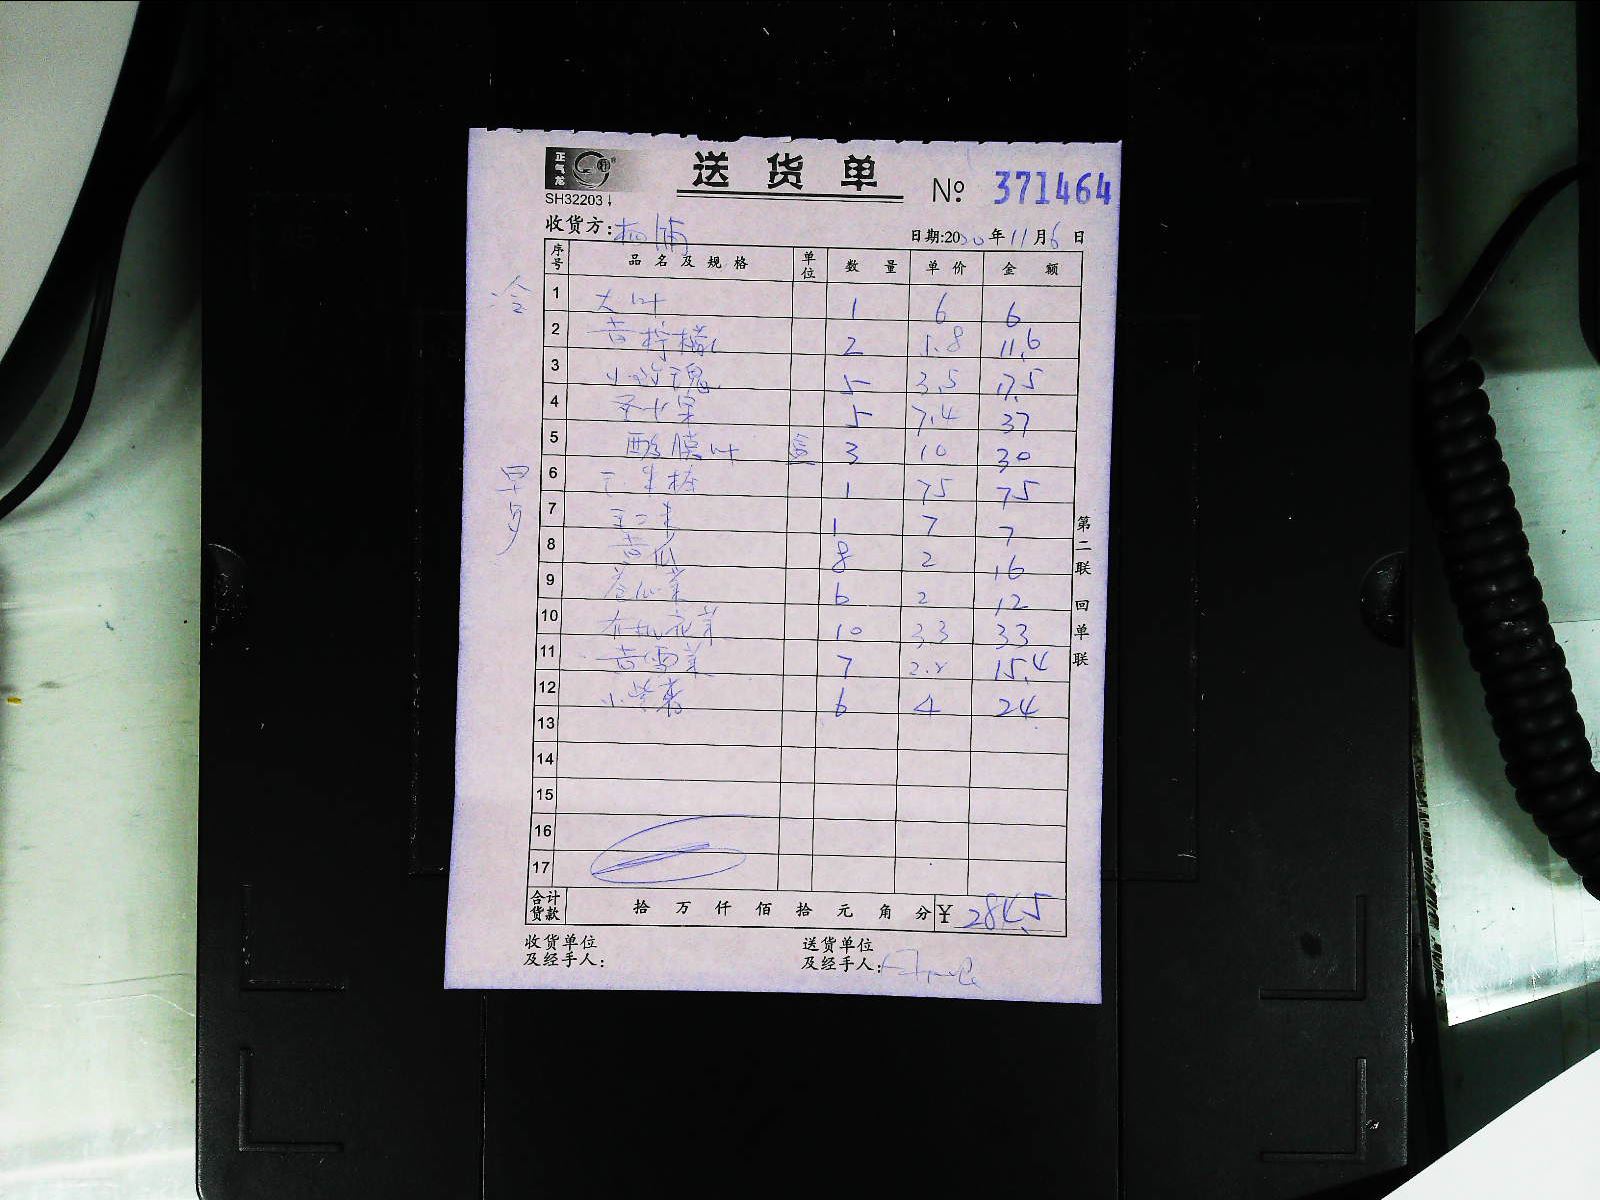 正气龙
送货单
SH32203
№ 371464
收货方:杨浦
日期:2020年11月6日
序号 品名及规格 单位 数量 单价 金额
冷
1 大叶 1 6 6
2 青柠檬 2 5.8 11.6
3 小玫瑰 5 3.5 17.5
4 圣女果 5 7.4 37
5 酸膜叶 盒 3 10 30
6 1 75 75
早夕
7 1 7 7
8 青瓜 8 2 16
9 6 2 12
10 有机花菜 10 3.3 33
11 7 2.2 15.4
12 6 4 24
13
14
15
16
17
合计货款 拾 万 仟 佰 拾 元 角 分 ¥ 284.5
收货单位及经手人:
送货单位及经手人:
第二联 回单联